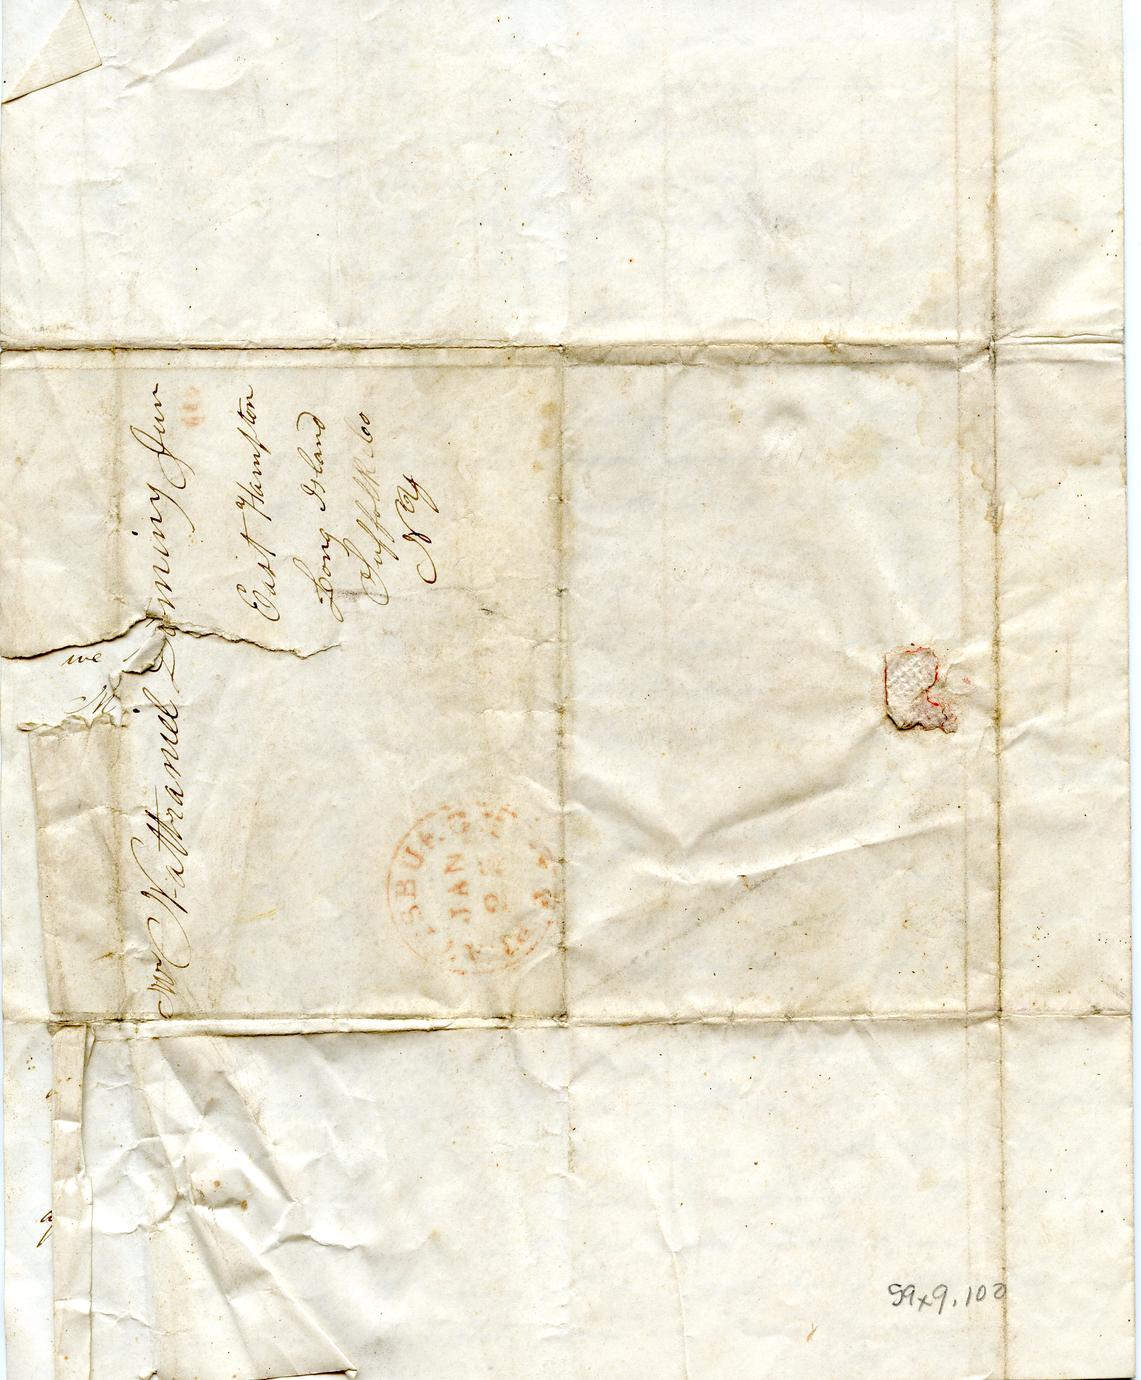 Mr Nathaniel Dominy Junr
East Hampton
Long Island
Suffolk Co
NY
we
M
SBURG
JAN
2
59x9.102